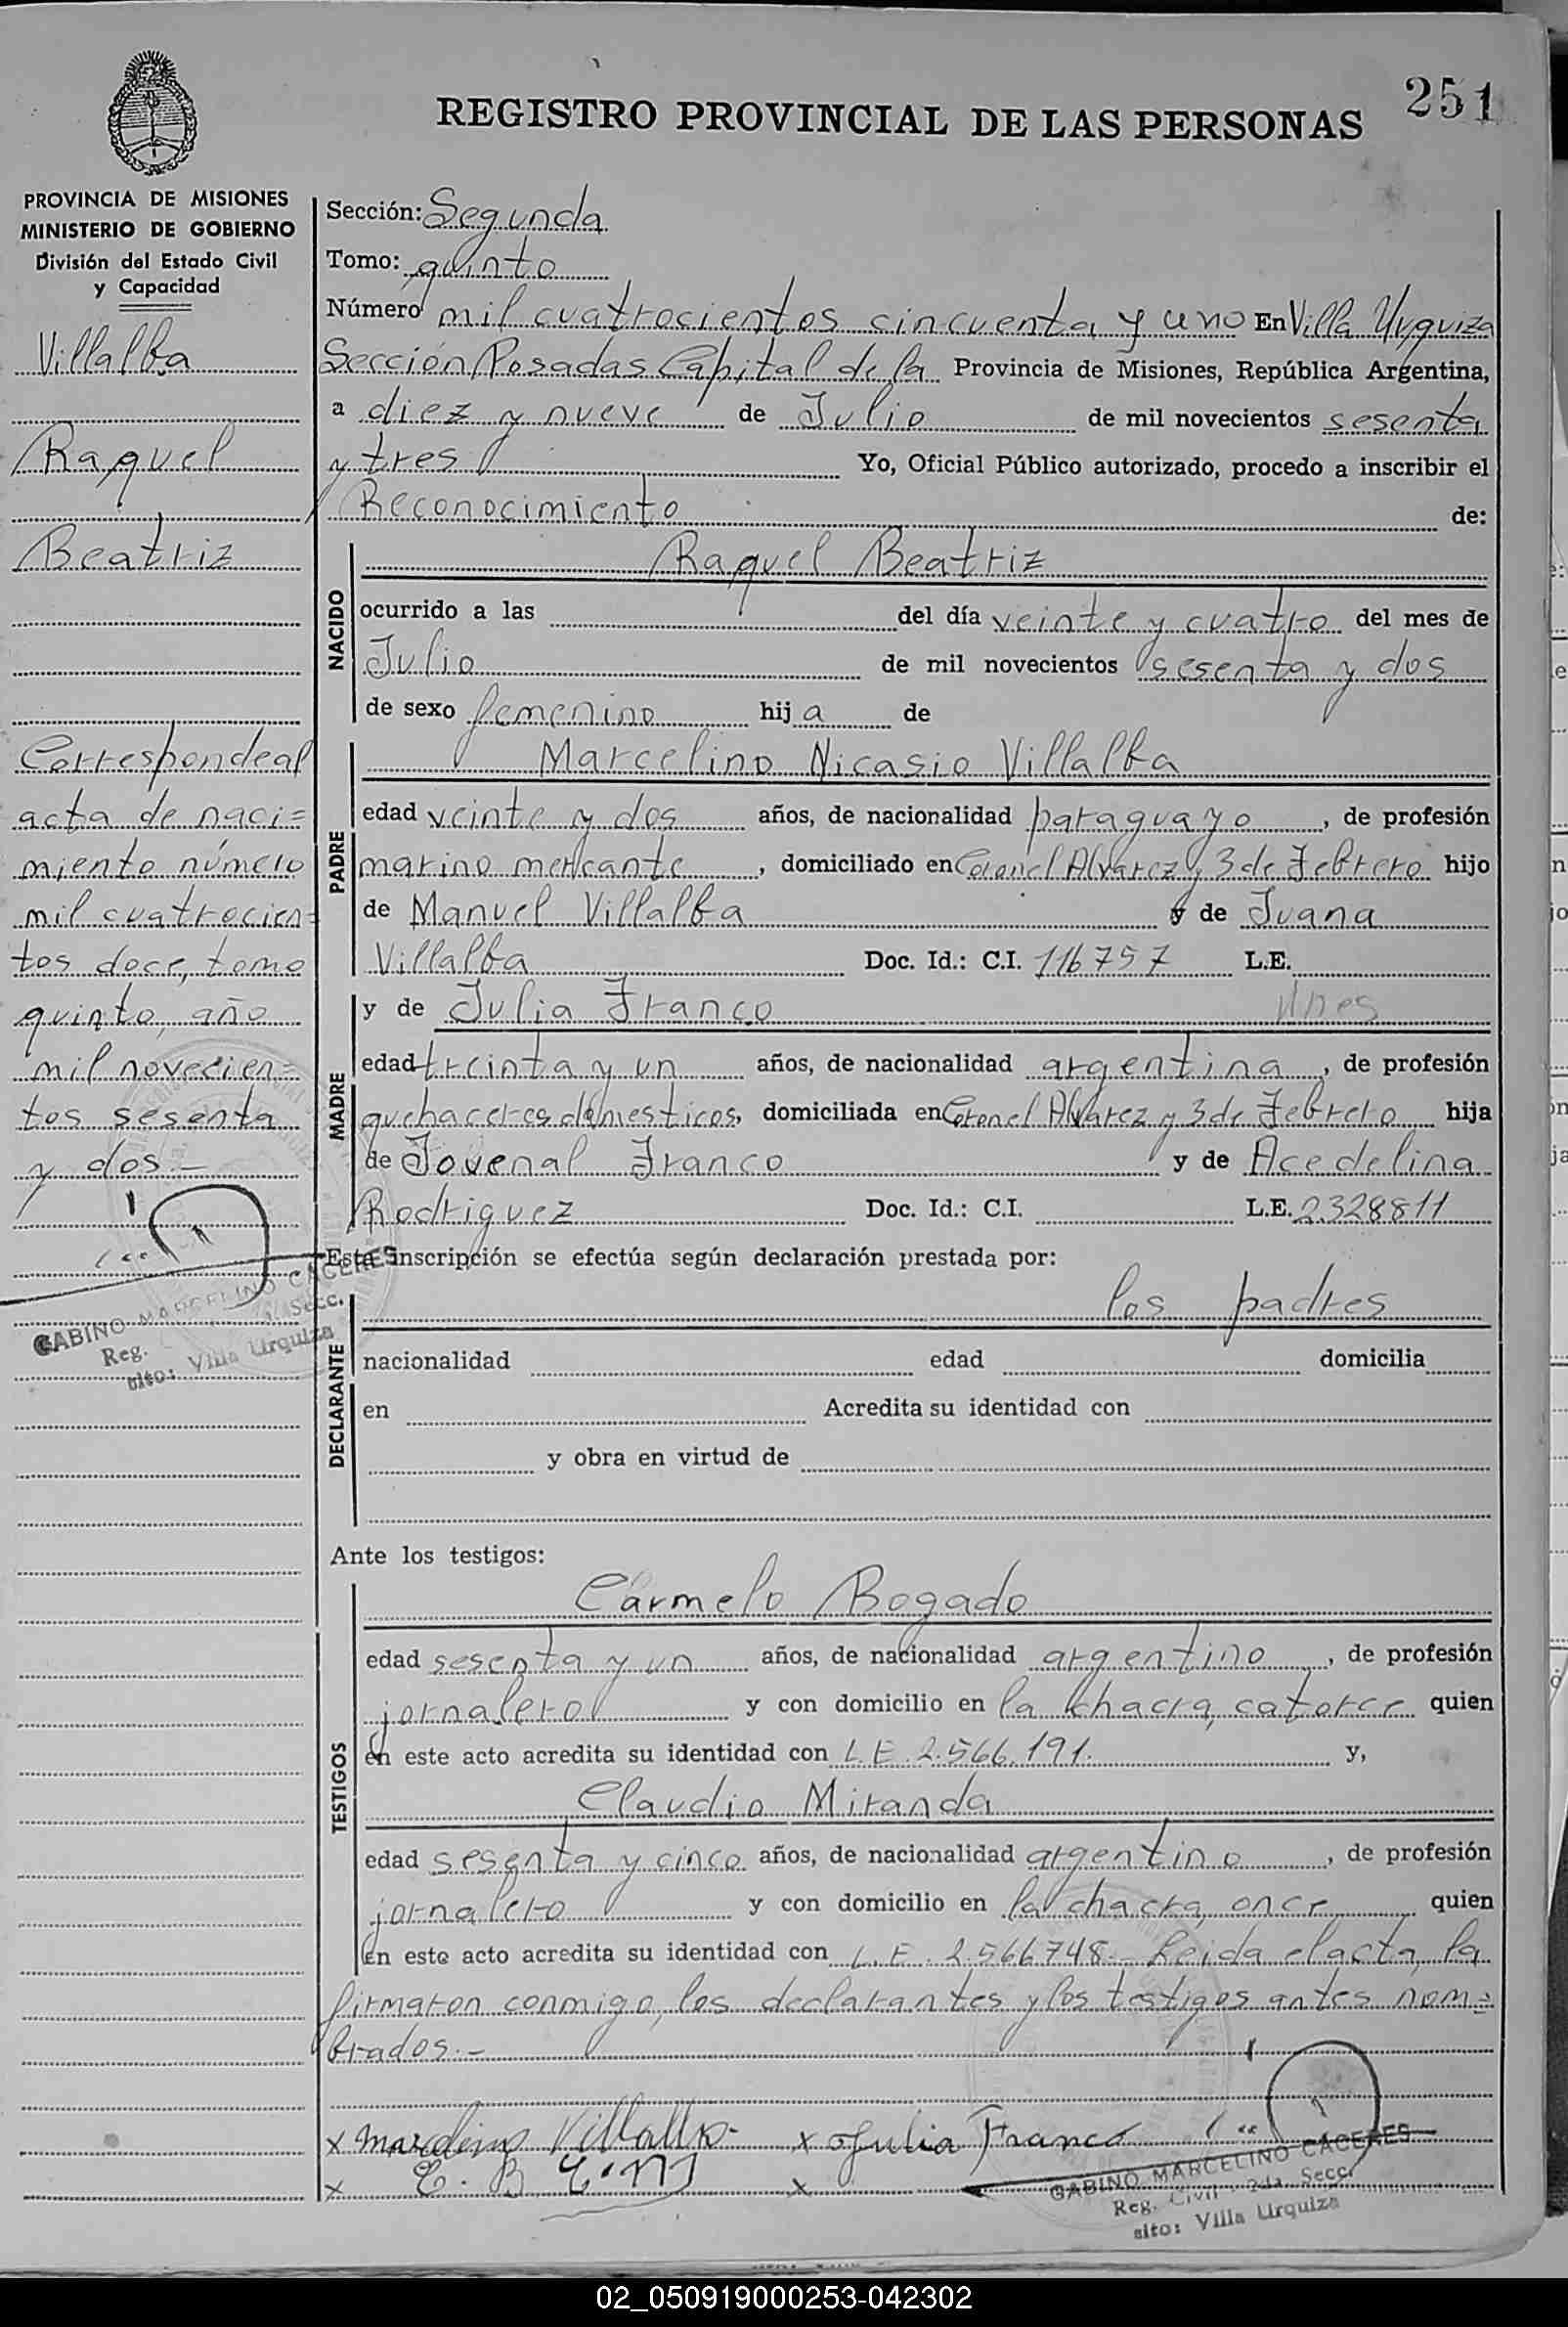 251
REGISTRO PROVINCIAL DE LAS PERSONAS
PROVINCIA DE MISIONES
MINISTERIO DE GOBIERNO
División del Estado Civil
y Capacidad
Villalba
Raquel
Beatriz
Correspondeal
acta de naci=
miento número
mil cuatrocien=
tos doce, tomo
quinto, año
mil novecien=
tos sesenta
y dos.-
GABINO MARCELINO CACERES
Reg. Secc.
sito: Villa Urquiza
Sección: Segunda
Tomo: quinto
Número mil cuatrocientos cincuenta y uno En Villa Urquiza
Sección Posadas Capital de la Provincia de Misiones, República Argentina,
a diez y nueve de Julio de mil novecientos sesenta
y tres Yo, Oficial Público autorizado, procedo a inscribir el
Reconocimiento de:
NACIDO
Raquel Beatriz
ocurrido a las del día veinte y cuatro del mes de
Julio de mil novecientos sesenta y dos
de sexo femenino hij a de
PADRE
Marcelino Nicasio Villalba
edad veinte y dos años, de nacionalidad paraguayo, de profesión
marino mercante, domiciliado en Coronel Alvarez y 3 de Febrero hijo
de Manuel Villalba y de Juana
Villalba Doc. Id.: C.I. 116757 L.E.
MADRE
y de Julia Franco
edad treinta y un años, de nacionalidad argentina, de profesión
quehaceres domesticos, domiciliada en Coronel Alvarez y 3 de Febrero hija
de Jovenal Franco y de Acedelina
Rodriguez Doc. Id.: C.I. L.E. 2.328811
Esta inscripción se efectúa según declaración prestada por:
DECLARANTE
los padres
nacionalidad edad domicilia
en Acredita su identidad con
y obra en virtud de
Ante los testigos:
TESTIGOS
Carmelo Bogado
edad sesenta y un años, de nacionalidad argentino, de profesión
jornalero y con domicilio en la chacra, catorce quien
en este acto acredita su identidad con L.E. 2.566.191. y,
Claudio Miranda
edad sesenta y cinco años, de nacionalidad argentino, de profesión
jornalero y con domicilio en la chacra, once quien
en este acto acredita su identidad con L.E. 2.566748.- Leida el acta, la
firmaron conmigo, los declarantes y los testigos antes nom=
brados.-
x Marcelino Villalba x Julia Franco
x C. B C. M x
GABINO MARCELINO CACERES
Reg. Civil 2da. Secc.
sito: Villa Urquiza
02_050919000253-042302